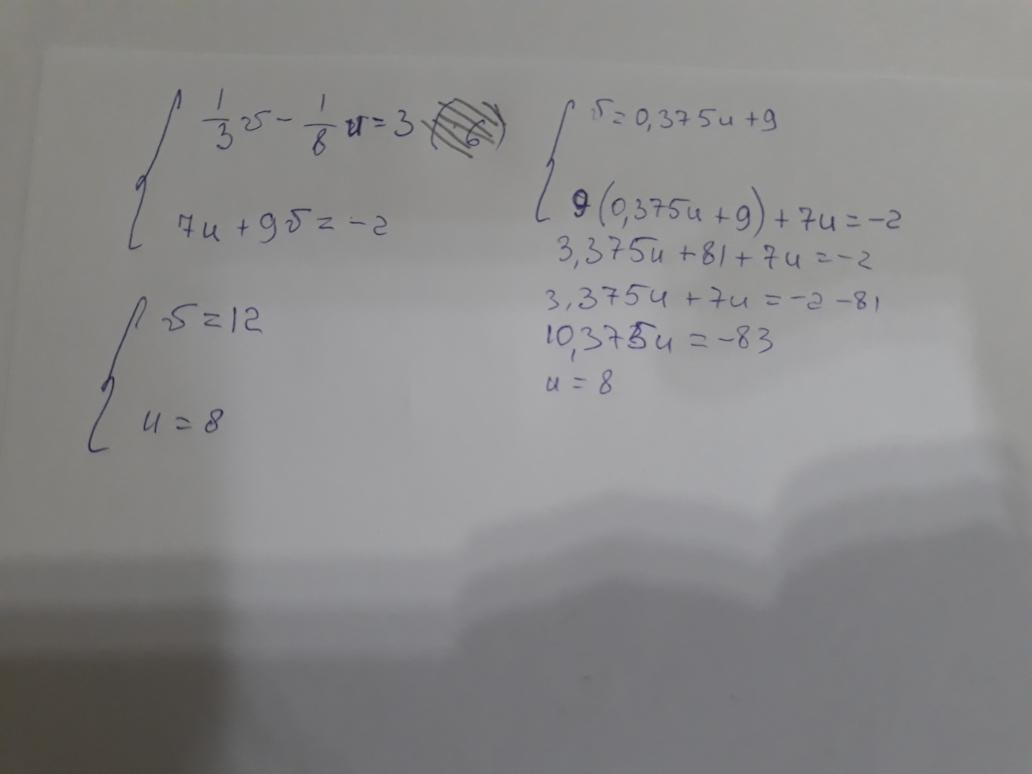 1/3 v - 1/8 u = 3
7u + 9v = -2
v = 12
u = 8
v = 0,375u + 9
9(0,375u + 9) + 7u = -2
3,375u + 81 + 7u = -2
3,375u + 7u = -2 - 81
10,375u = -83
u = 8